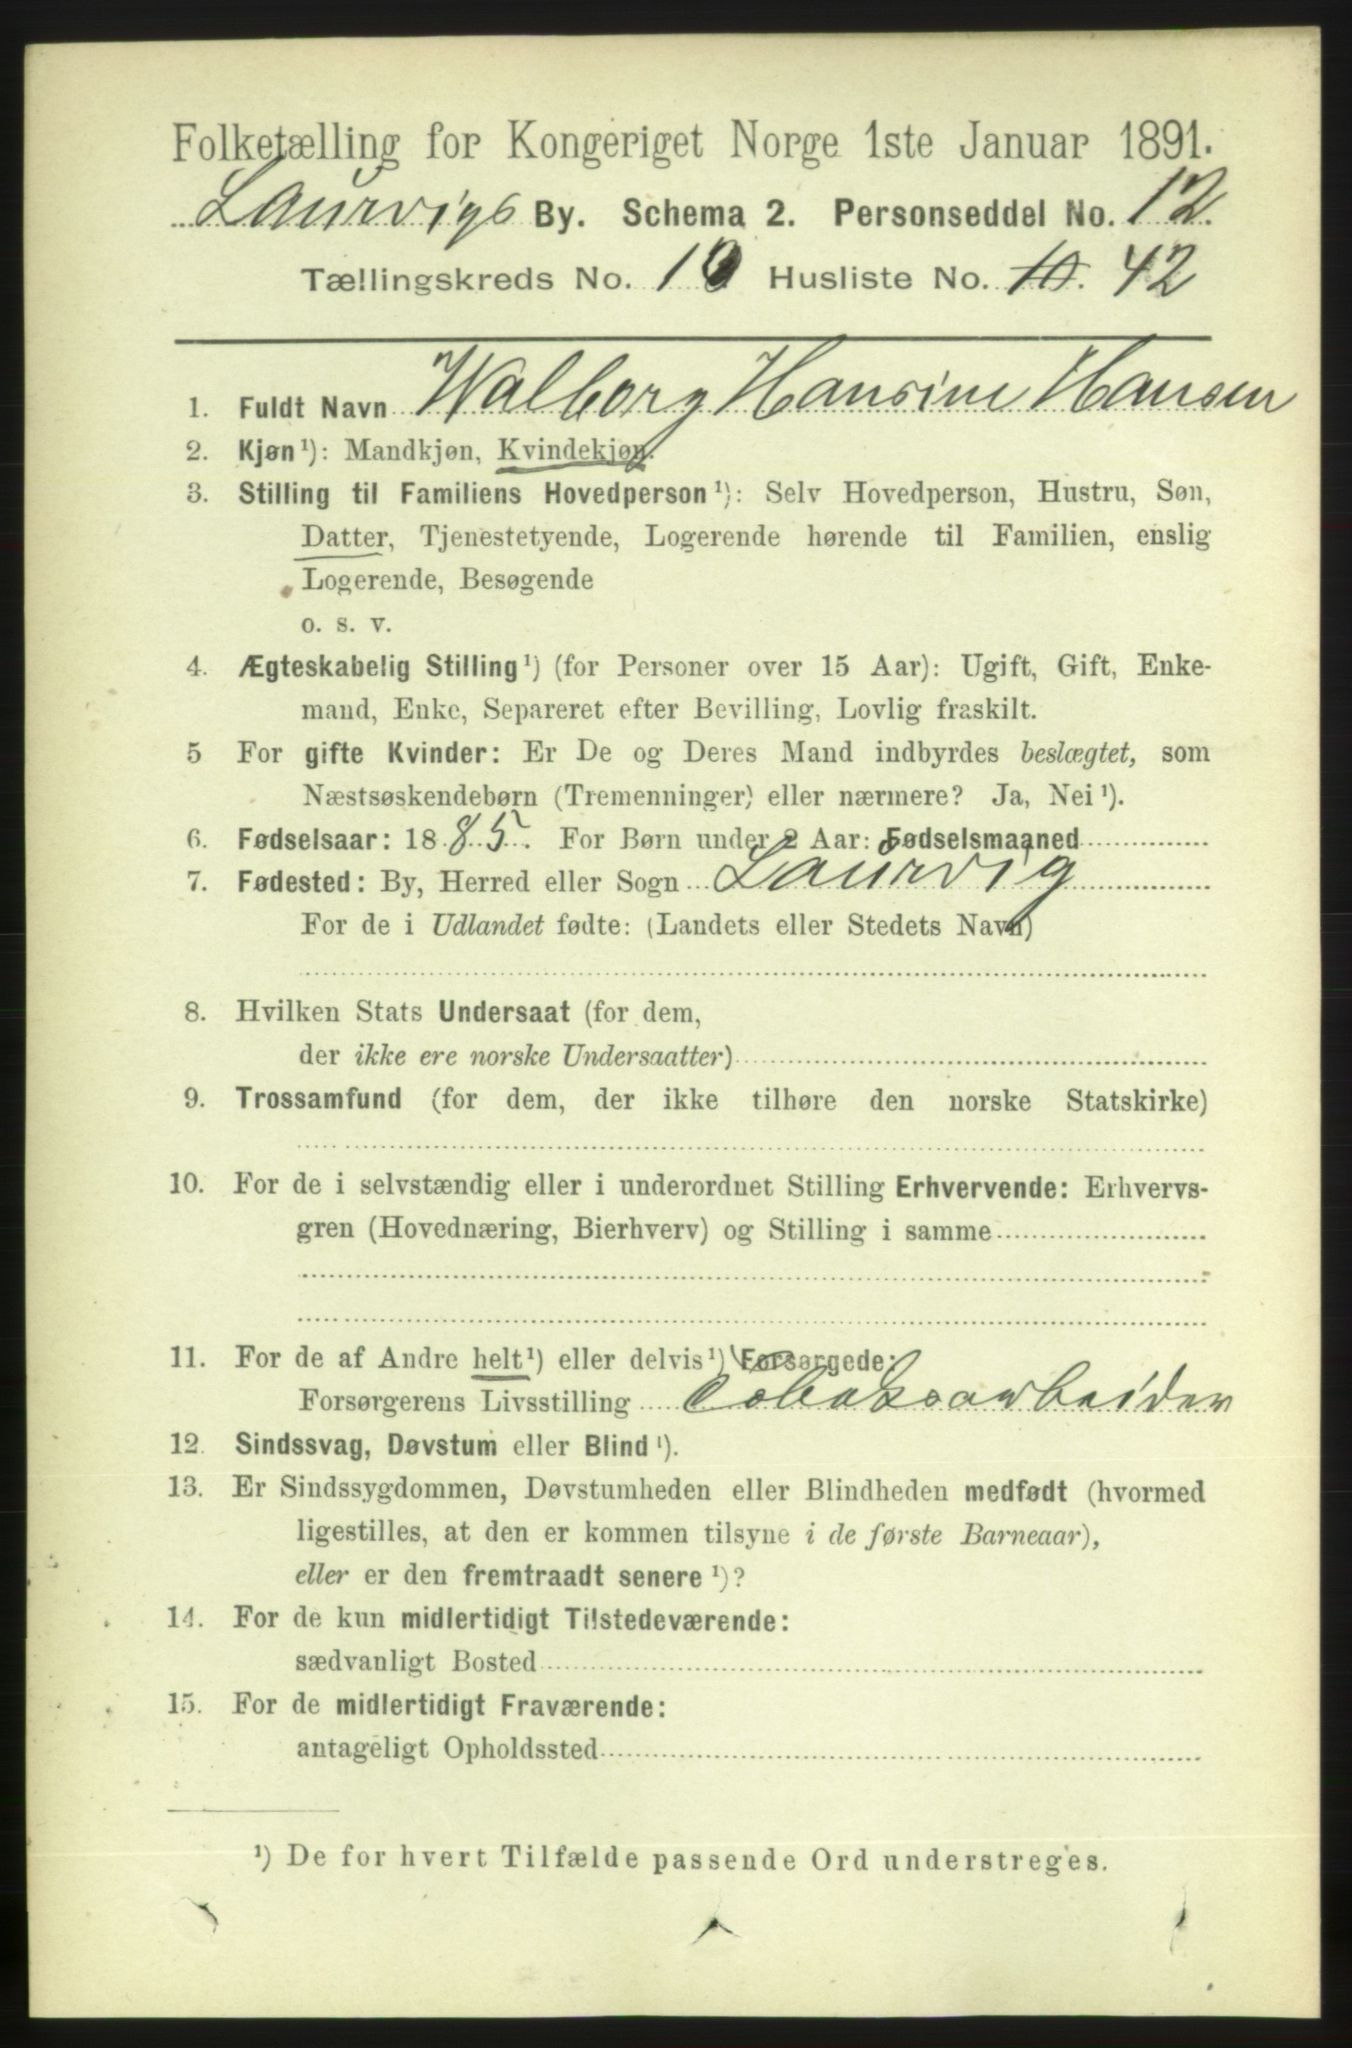 Folketælling for Kongeriget Norge 1ste Januar 1891.
Laurvigs By. Schema 2. Personseddel No. 12.
Tællingskreds No. 10 Husliste No. 10. 42
1. Fuldt Navn Walborg Hansine Hansen
2. Kjøn¹): Mandkjøn, Kvindekjøn.
3. Stilling til Familiens Hovedperson¹): Selv Hovedperson, Hustru, Søn,
Datter, Tjenestetyende, Logerende hørende til Familien, enslig
Logerende, Besøgende
o. s. v.
4. Ægteskabelig Stilling¹) (for Personer over 15 Aar): Ugift, Gift, Enke-
mand, Enke, Separeret efter Bevilling, Lovlig fraskilt.
5 For gifte Kvinder: Er De og Deres Mand indbyrdes beslægtet, som
Næstsøskendebørn (Tremenninger) eller nærmere? Ja, Nei¹).
6. Fødselsaar: 1885. For Børn under 2 Aar: Fødselsmaaned
7. Fødested: By, Herred eller Sogn Laurvig
For de i Udlandet fødte: (Landets eller Stedets Navn)
8. Hvilken Stats Undersaat (for dem,
der ikke ere norske Undersaatter)
9. Trossamfund (for dem, der ikke tilhøre den norske Statskirke)
10. For de i selvstændig eller i underordnet Stilling Erhvervende: Erhvervs-
gren (Hovednæring, Bierhverv) og Stilling i samme
11. For de af Andre helt¹) eller delvis¹) Forsørgede:
Forsørgerens Livsstilling Tobaksarbeider
12. Sindssvag, Døvstum eller Blind¹).
13. Er Sindssygdommen, Døvstumheden eller Blindheden medfødt (hvormed
ligestilles, at den er kommen tilsyne i de første Barneaar),
eller er den fremtraadt senere¹)?
14. For de kun midlertidigt Tilstedeværende:
sædvanligt Bosted
15. For de midlertidigt Fraværende:
antageligt Opholdssted
¹) De for hvert Tilfælde passende Ord understreges.